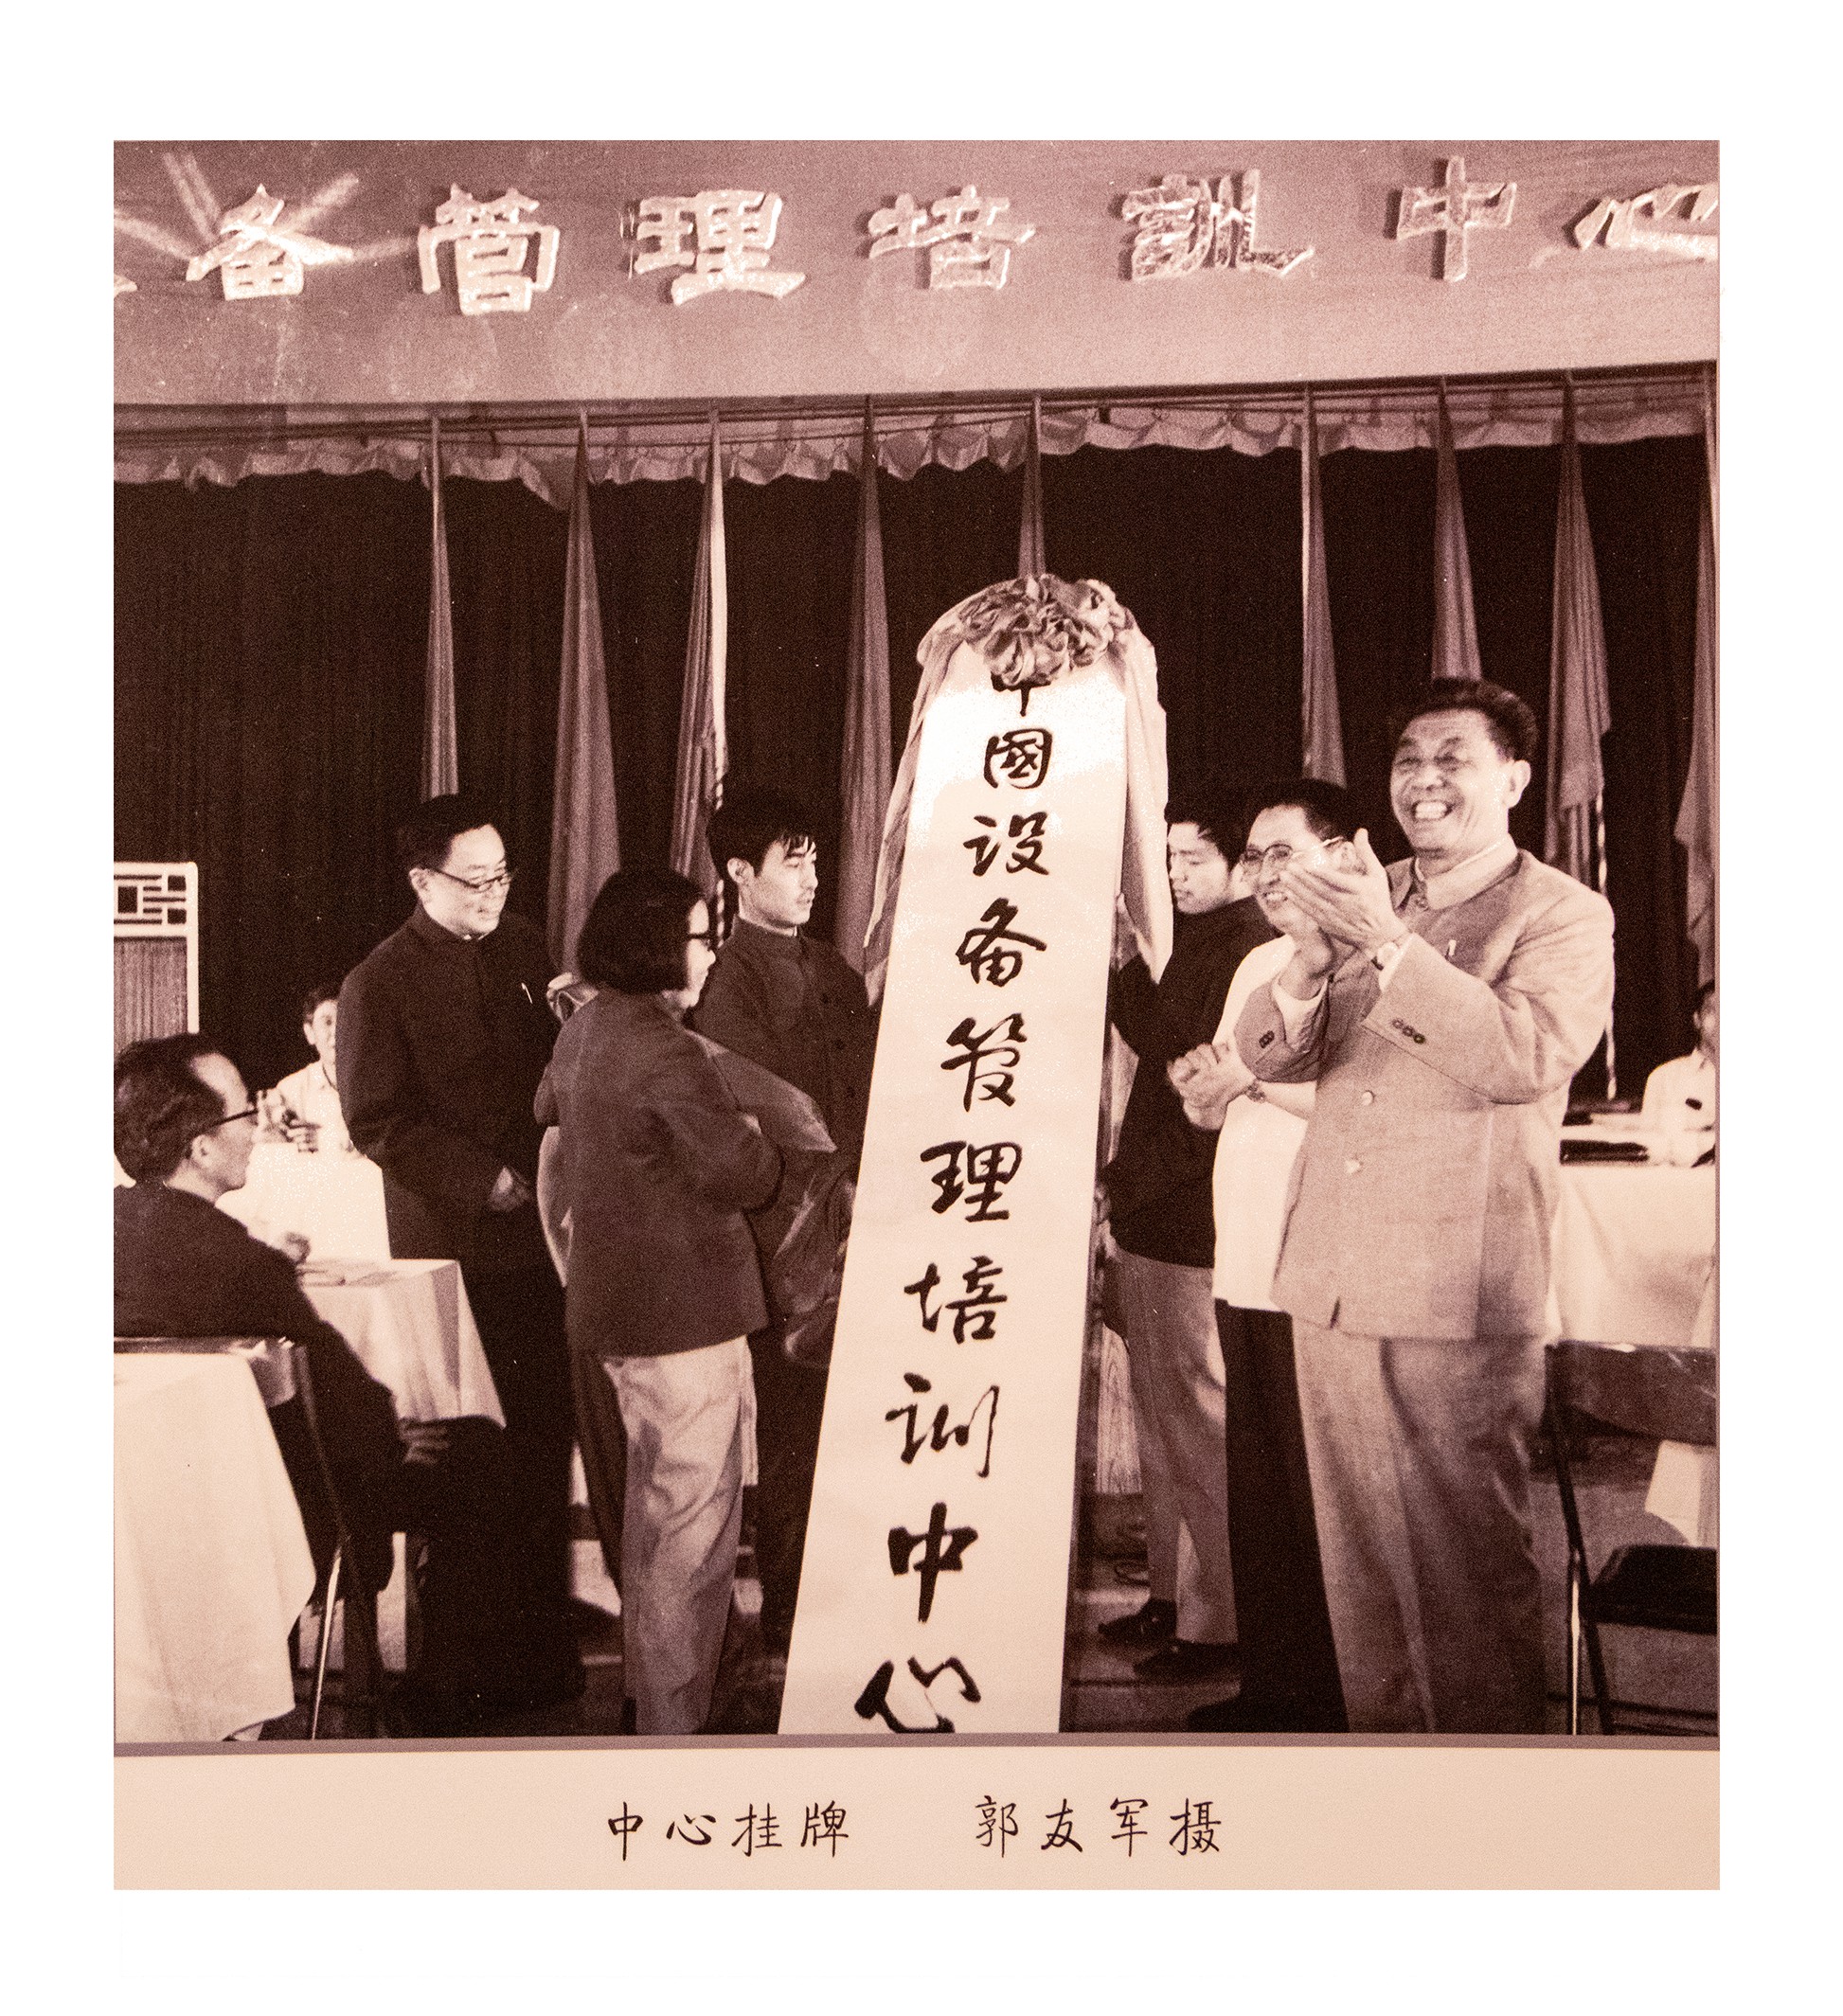 备管理培訓中心
中國设备管理培训中心
中心挂牌 郭友军摄